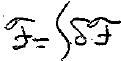 ℱ = ∫δℱ